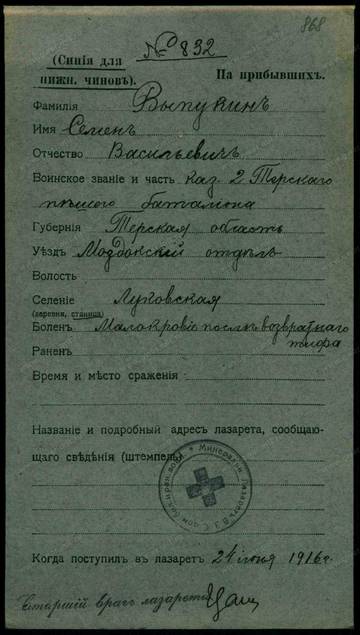 868
№ 832
(Синія для
нижн. чиновъ).
На прибывшихъ.
Фамилія Выпукинъ
Имя Семенъ
Отчество Васильевичъ
Воинское званіе и часть каз. 2 Терскаго
пѣшаго баталіона
Губернія Терская область
Уѣздъ Моздокскій отдѣлъ
Волость
Селеніе Луковская
(деревня, станица)
Боленъ Малокровіе послѣ возвратнаго
тифа
Раненъ
Время и мѣсто сраженія
Названіе и подробный адресъ лазарета, сообщаю-
щаго свѣдѣнія (штемпель)
Когда поступилъ въ лазаретъ 24 іюня 1916 г.
Старшій врач лазарета